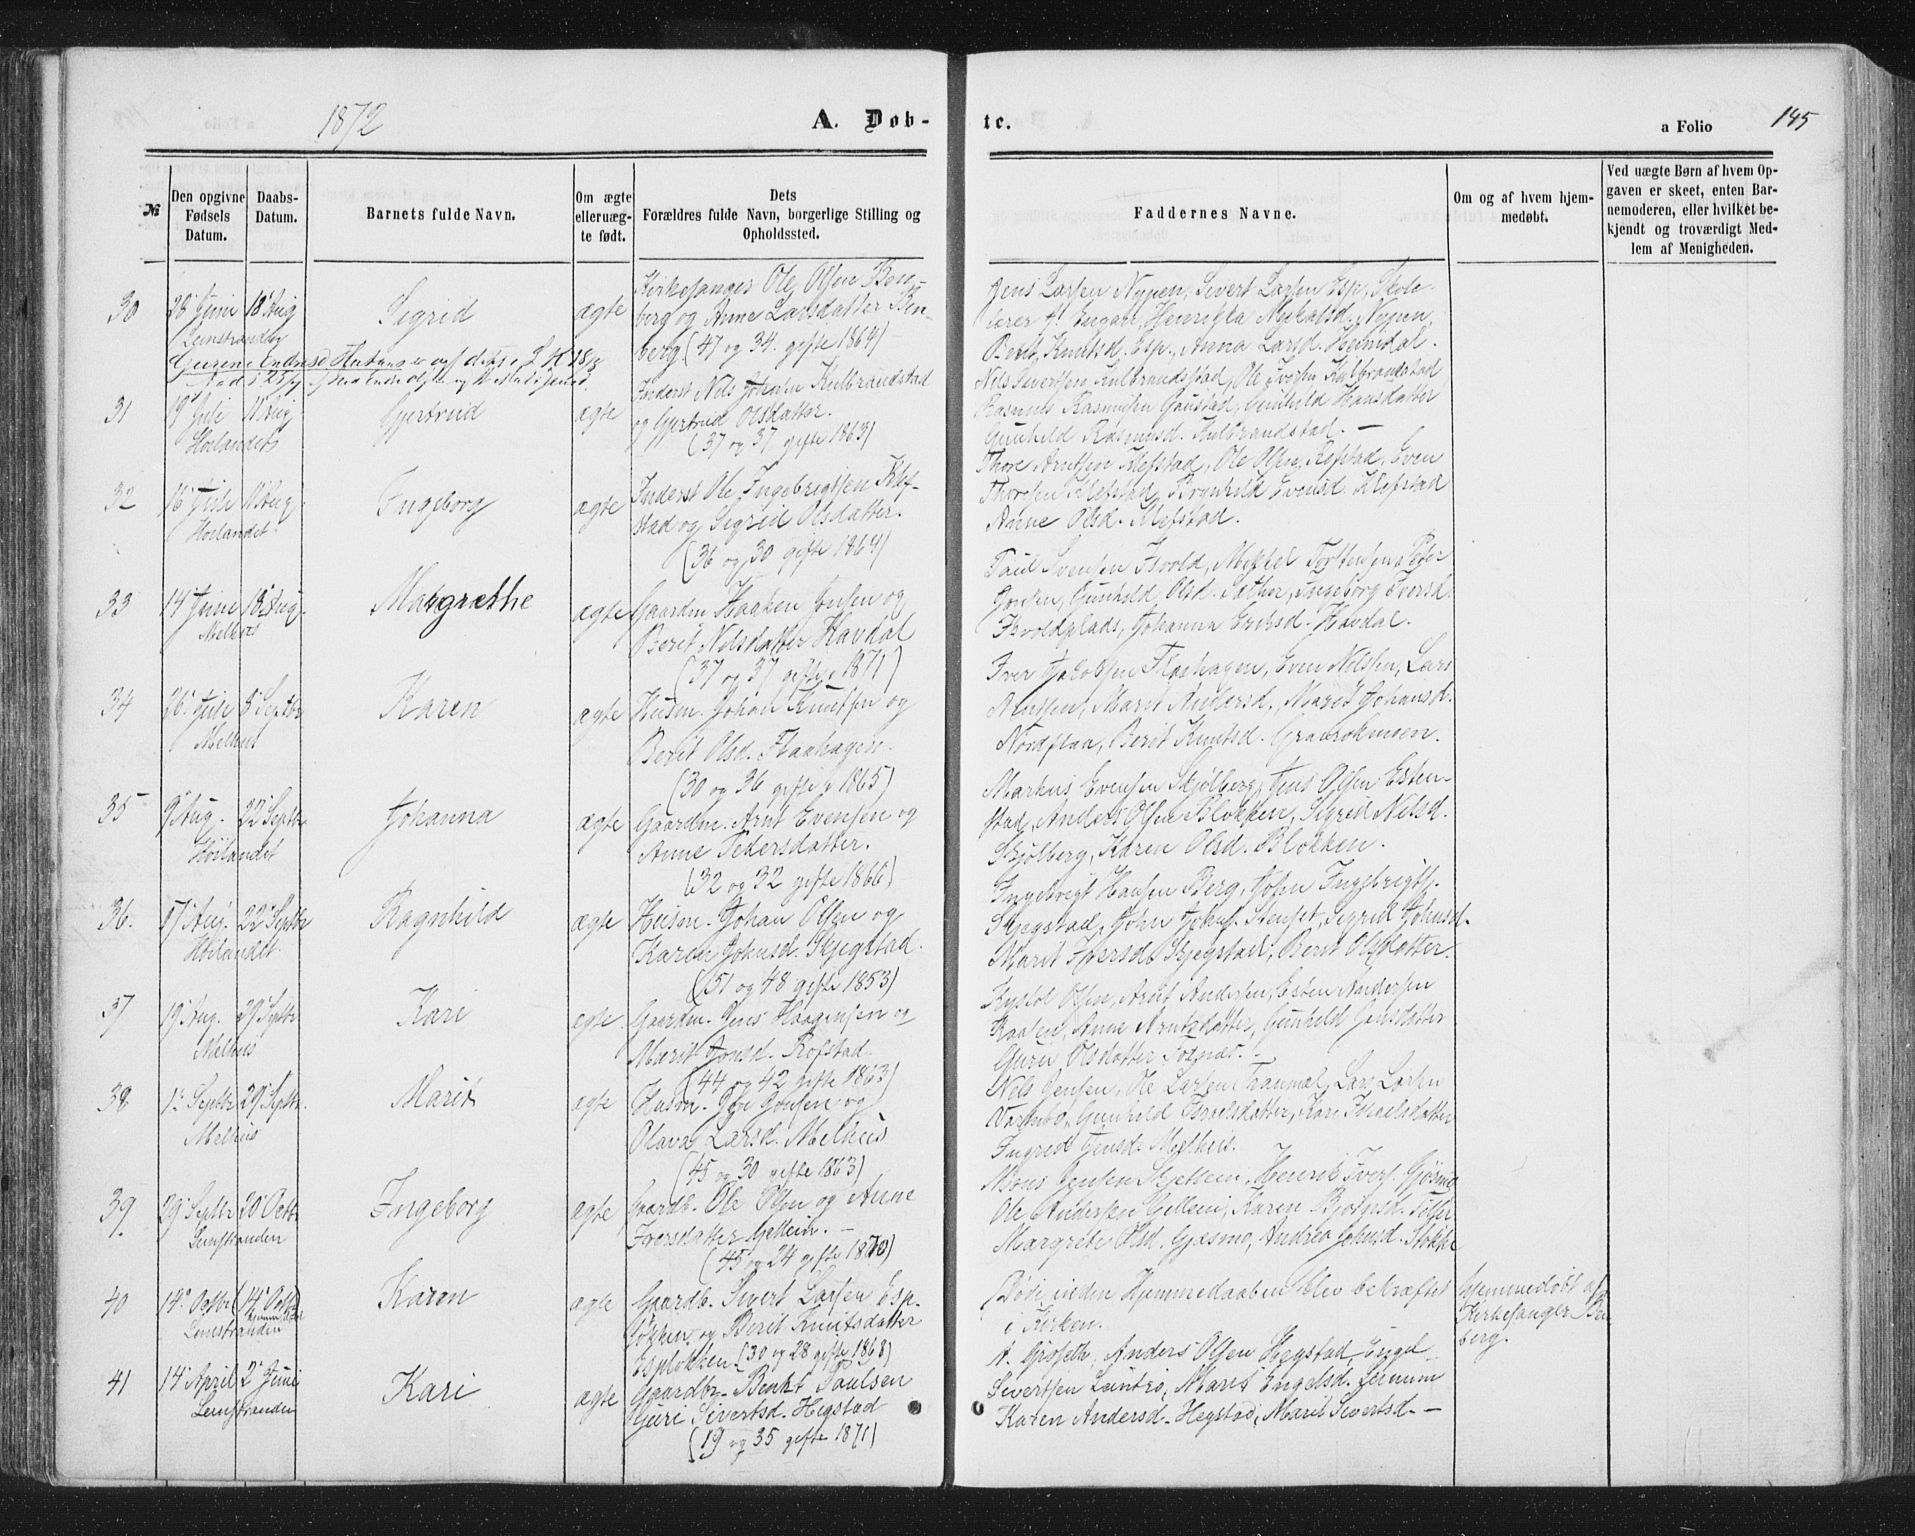 1872
A. Døb-
te.
a Folio
145
№
Den opgivne Fødsels Datum.
Daabs-Datum.
Barnets fulde Navn.
Om ægte elleruæg-te født.
Dets Forældres fulde Navn, borgerlige Stilling og Opholdssted.
Faddernes Navne.
Om og af hvem hjem-medøbt.
Ved uægte Børn af hvem Op-gaven er skeet, enten Bar-nemoderen, eller hvilket be-kjendt og troværdigt Med-lem af Menigheden.
30
28 Juni
18 Aug
Sigrid
ægte
Kirkesanger Ole Olsen Ben-
berg og Anne Larsdatter Ben-
berg (47 og 34 gifte 1864)
Jens Larsen Nypen, Sivert Larsen Esp, Skole-
lærer
Berit Knutsd. Esp, Anna Larsd. Heimdal.
31
19 Juli
11 Aug
Høilandet
Gjertrud
ægte
Inderst Nils Johan Kulbrandstad
og Gjertrud Olsdatter.
(37 og 37 gifte 1863)
Nils Sivertsen Kulbrandstad, Ole Iversen Kulbrandstad
Rasmus Rasmusen Gaustad, Gunhild Hansdatter
Gunhild Rasmusd. Kulbrandstad. —
32
16 Juli
11 Aug
Høilandet
Ingeborg
ægte
Inderst Ole Ingebrigtsen Klef-
stad og Sigrid Olsdatter.
(36 og 30 gifte 1864)
Thore Arntsen Klefstad, Ole Olsen Rofstad, Even
Thoresen Klefstad, Brynhild Evensd. Klefstad
Anne Olsd. Klefstad.
33
14 Juni
18 Aug
Melhus
Margrethe
ægte
Gaardm. Haaken Jonsen og
Berit Nilsdatter Havdal
(37 og 37 gifte 1871)
Paul Svensen Kvold, Mikkel
Gunhild Olsd. Sæther, Ingeborg Iversd.
Kvoldplads, Johanna Eriksd. Havdal.
34
26 Juli
8 Septbr
Melhus
Karen
ægte
Husm. Johan Knutsen og
Berit Olsd. Flaahagen.
(30 og 36 gifte 1865)
Iver Jakobsen Flaahagen, Even Nilsen, Lars
Arntsen, Marit Andersd., Marit Johansd.
Nordflaa, Berit Knutsd.
35
9 Aug.
22 Septbr
Høilandet
Johanna
ægte
Gaardm. Arnt Evensen og
Anne Pedersdatter.
(32 og 32 gifte 1866)
Markus Evensen Skjølberg, Jens Olsen Esten-
stad, Anders Olsen Blokken, Sigrid Nilsd.
Skjølberg, Karen Olsd. Blokken.
36.
17 Aug.
22 Septbr
Høilandet
Ragnhild
ægte
Husm. Johan Olsen og
Karen Johnsd. Skjegstad.
(51 og 48 gifte 1853)
Ingebrigt Hansen Berg, John Ingebrigts.
Skjegstad, John Johns. Stenset, Sigrid Johnsd.
Marit Iversd. Skjegstad, Berit Olsdatter.
37
19 Aug.
29 Septbr
Melhus
Kari
ægte
Gaardm. Jens Haagensen og
Marit Jonsd. Rofstad.
(44 og 42 gifte 1863)
Kystol Olsen, Arnt Andersen, Esten Andersen
Kaalen, Anne Arntsdatter, Gunhild Jensdatter
Guru Olsdatter
38
1 Septbr
29 Septbr
Melhus
Marit
ægte
Husm. Jonsen og
Olava Larsd. Melhus
(45 og 30 gifte 1863)
Nils Jensen, Ole Larsen Tranmal, Lars Larsen
Varmbo, Gunhild Israelsdatter, Kari Israelsdatter
Ingrid Jensd. Melhus.
39.
29 Septbr
20 Octbr
Leinstranden
Ingeborg
ægte
Gaardb. Ole Olsen og Anne
Iversdatter —
(45 og 24 gifte 1870)
Mons Jensen Skjetlein, Henrik Ivers. Gjøsmo
Ole Andersen Karen Bjørnsd.
Margrete Olsd. Gjæsmo, Andrea Johnsd.
40
14 Octbr
(14 Octbr
Leinstranden
Karen
ægte
Gaardb. Sivert Larsen Esp-
løkken og Berit Knutsdatter
Espløkken (30 og 28 gifte 1868)
Døde inden Hjemmedaaben blev bekræftet
i Kirken.
Hjemmedøbt af
Kirkesanger Ben-
berg.
41
14 April
2 Juni
Leinstranden
Kari
ægte
Gaardbr. Benkt Paulsen
Guri Sivertsd. Hegstad
(19 og 35 gifte 1871)
A. Groseth, Anders Olsen Hegstad, Engel
Sivertsen Marit Engelsd.
Karen Andersd. Hegstad, Marit Sivertsd. —